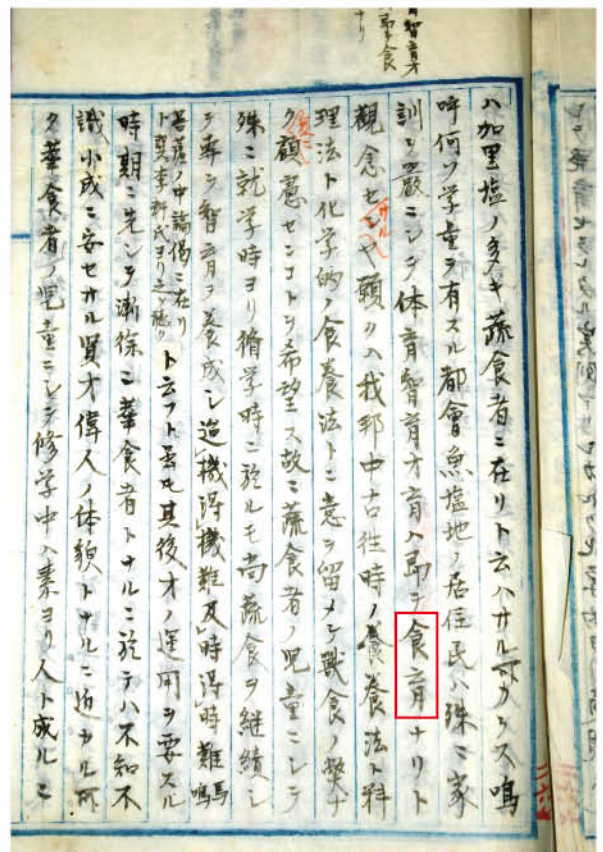 育智育才
即食
ナリ
ハ加里塩ノ多キ蔬食者ニ在リト云ハサル可カラス嗚
呼何ソ学童ヲ有スル都會魚塩地ノ居住民ハ殊ニ家
訓ヲ嚴ニシテ体育智育才育ハ即チ食育ナリト
觀念セシヤ願クハ我邦中古往時ノ食養法ト科
理法ト化学的ノ食養法トニ意ヲ留メテ獣食ノ弊ナ
ク顧慮センコトヲ希望ス故ニ蔬食者ノ児童ニシテ
殊ニ就学時ヨリ脩学時ニ於ルモ尚蔬食ヲ継続シ
ラ専ラ智育ヲ養成シ迨機得機難及時得時難
菩薩ノ中論偈ニ在リ
ト云フト雖モ其後才ノ運用ヲ要スル
時期ニ先ンテ漸徐ニ葷食者トナルニ於テハ不知不
識小成ニ安セサル賢才偉人ノ体貌トナルニ近カル可
ク葷食者ノ児童ニシテ修学中ハ素ヨリ人ト成ルニ